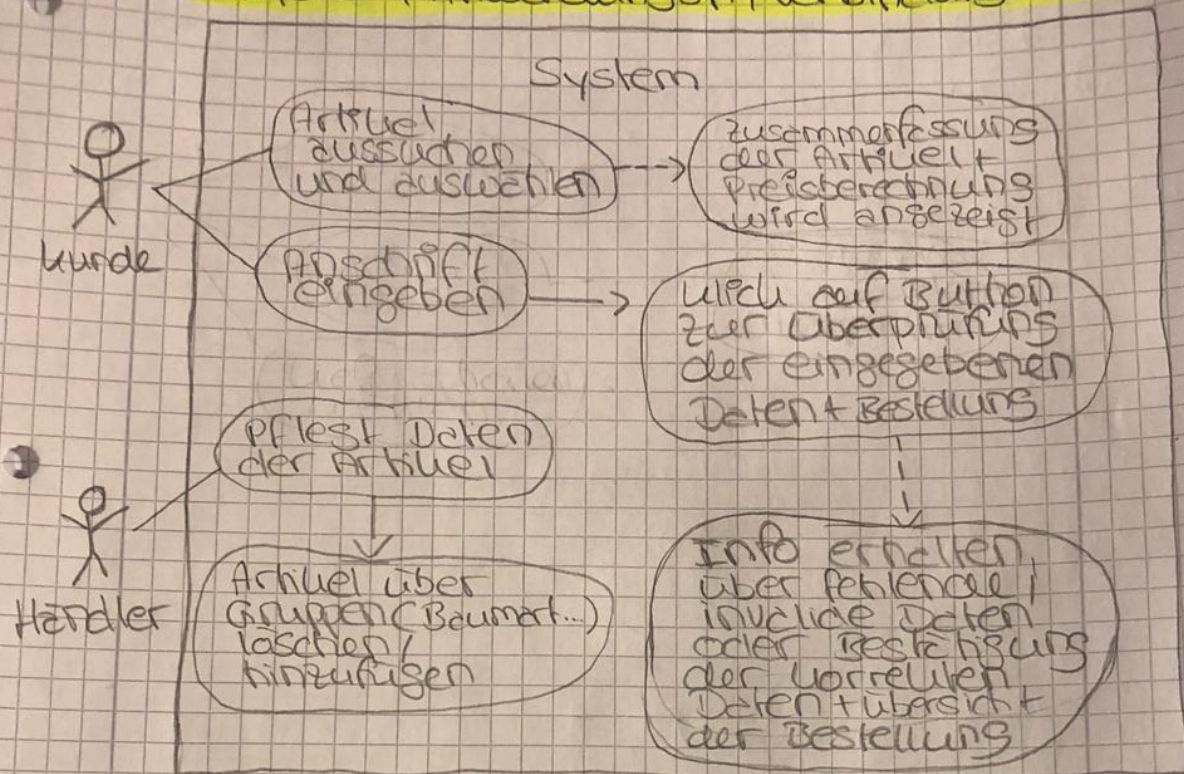 System
Artikel
aussuchen
und auswählen
Zusammenfassung
der Artikel +
Preisberechnung
wird angezeigt
Kunde
Anschrift
eingeben
Klick auf Button
zur Überprüfung
der eingegebenen
Daten + Bestellung
Pflegt Daten
der Artikel
Händler
Artikel über
Gruppen (Baumart...)
löschen/
hinzufügen
Info erhalten,
über fehlende/
invalide Daten
oder Bestätigung
der korrekten
Daten + Übersicht
der Bestellung